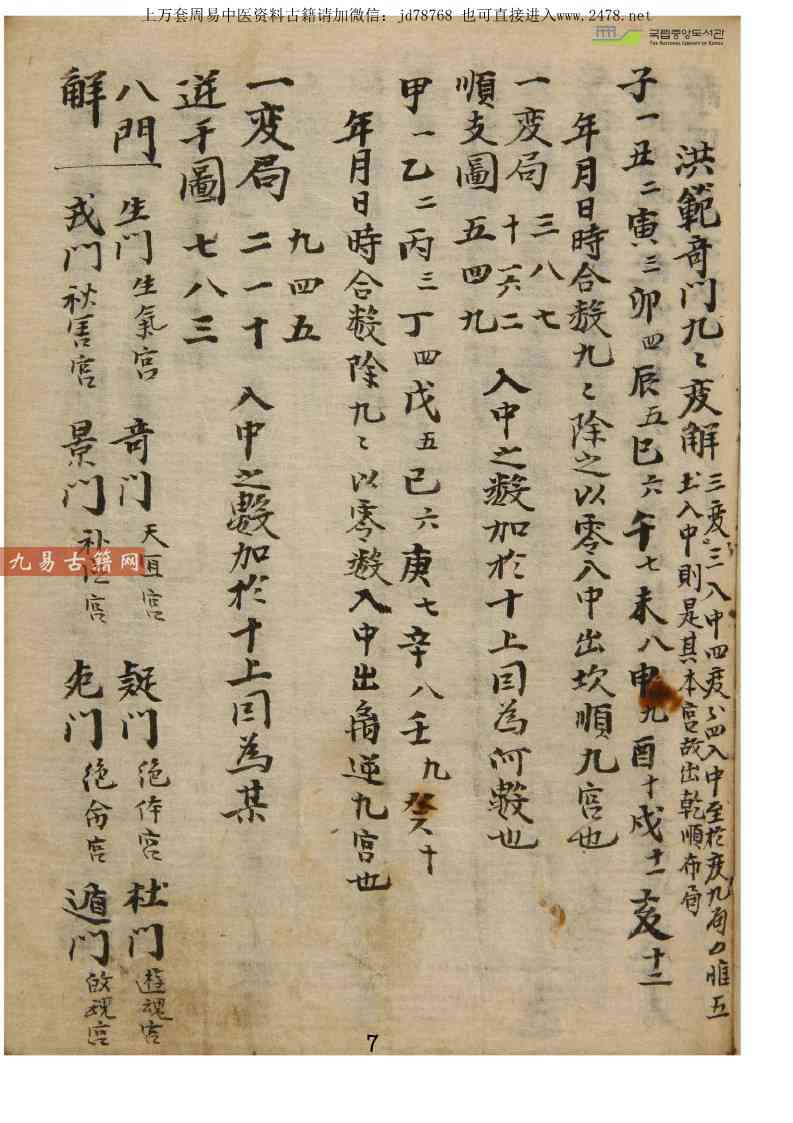 上万套周易中医资料古籍请加微信：jd78768 也可直接进入www.2478.net
국립중앙도서관
THE NATIONAL LIBRARY OF KOREA
洪範奇門九〻変解 三変〻三入中四変〻四入中至於変九局 惟五
土入中則是其本宮故出乾順布局
子一丑二寅三卯四辰五巳六午七未八申九酉十戌十一亥十二
年月日時合数九〻除之以零入中出坎順九宮也
一変局 三八七
十六二
順支圖 五四九
入中之数加於十上因為何数也
甲一乙二丙三丁四戊五己六庚七辛八壬九癸十
年月日時合数除九〻以零数入中出离逆九宮也
一変局 九四五
二一十
逆干圖 七八三
入中之數加於十上因為某
八門 生門 生氣宮 奇門 天宜宮 疑門 絶体宮 杜門 遊魂宮
解 戎門 禍害宮 景門 福德宮 死門 絶命宮 遁門 故魂宮
九易古籍网
7